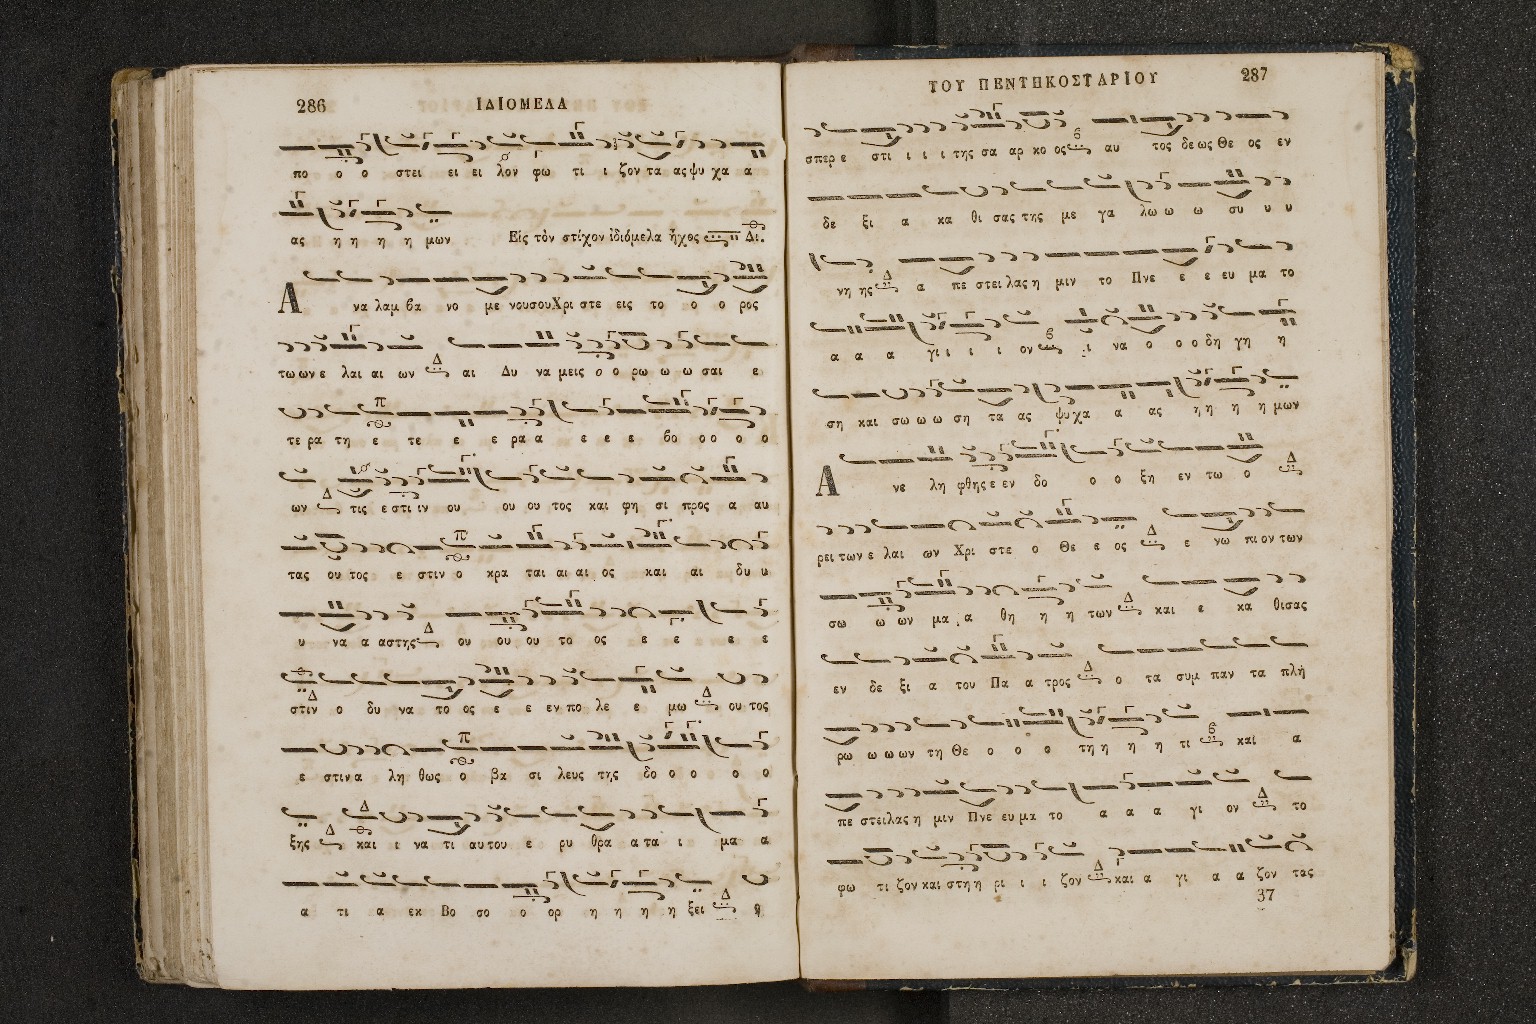 286
ΙΔΙΟΜΕΛΑ
πο ο ο στει ει ει λον φω τι ι ζον τα ας ψυ χα α
ας η η η η μων Εἰς τὸν στίχον ἰδιόμελα ἦχος Δι.
Α να λαμ βα νο με νου σου Χρι στε εις το ο ο ρος
τω ων ε λαι αι ων αι Δυ να μεις ο ο ρω ω ω σαι ε
τε ρα τη ε τε ε ε ρα α ε ε ε βο ο ο ο ο
ων τις ε στι ιν ου ου ου τος και φη σι προς α αυ
τας ου τος ε στιν ο κρα ται αι αι ος και αι δυ υ
υ να α αστης ου ου ου το ος ε ε ε ε
στιν ο δυ να το ος ε ε εν πο λε ε μω ου τος
ε στιν α λη θως ο βα σι λευς της δο ο ο ο ο
ξης και ι να τι αυ του ε ρυ θρα α τα ι μα α
α τι α εκ Βο σο ο ορ η η η η ξει η
ΤΟΥ ΠΕΝΤΗΚΟΣΤΑΡΙΟΥ
287
σπερ ε στι ι ι ι της σα αρ κο ος αυ τος δε ως Θε ος εν
δε ξι α κα θι σας της με γα λω ω ω συ υ υ
νη ης α πε στει λας η μιν το Πνε ε ε ευ μα το
α α α γι ι ι ι ον ι να ο ο ο δη γη η
ση και σω ω ω ση τα ας ψυ χα α ας η η η η μων
Α νε λη φθης ε εν δο ο ο ξη εν τω ο
ρει των ε λαι ων Χρι στε ο Θε ε ος ε νω πι ον των
σω ω ων μα α θη η η των και ε κα θισας
εν δε ξι α του Πα α τρος ο τα συμ παν τα πλη
ρω ω ω ων τη Θε ο ο ο τη η η η τι και α
πε στειλας η μιν Πνε ευ μα το α α α γι ον το
φω τι ζον και στη η ρι ι ι ζον και α γι α α ζον τας
37